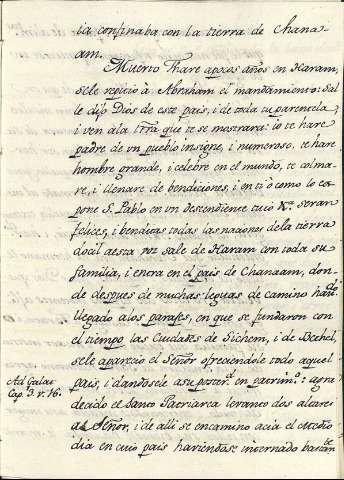 tia confinaba con la tierra de Chana-
am.
Muerto Thare apocos años en Haram,
sele repitio à Abraham el mandamiento: Sal
le dijo Dios de este pais, i de toda tu parentela
i ven ala ttra que te se mostrara: io te hare
padre de un pueblo insigne, i numeroso, te hare
hombre grande, i celebre en el mundo, te colma-
re, i llenare de bendiciones, i en ti ò como lo es-
pone S. Pablo en un descendiente tuio seran
felices, i benditas todas las naciones de la tierra
docil aesta voz sale de Haram con toda su
familia, i entra en el pais de Chanaam, don-
de despues de muchas leguas de camino
llegado alos parajes, en que se fundaron con
el tiempo las Cuidades de Sichem, i de Bethel,
sele aparecio el Señor ofreciendole todo aquel
pais, i dandosele asu poster.d en patrim.o: agra
decido el Santo Patriarca levanto dos altares
al Señor, i de alli se encamino acia el Medio
dia en cuio pais haviendose internado bastan.te
Ad Galat
Cap. 3. v. 16.